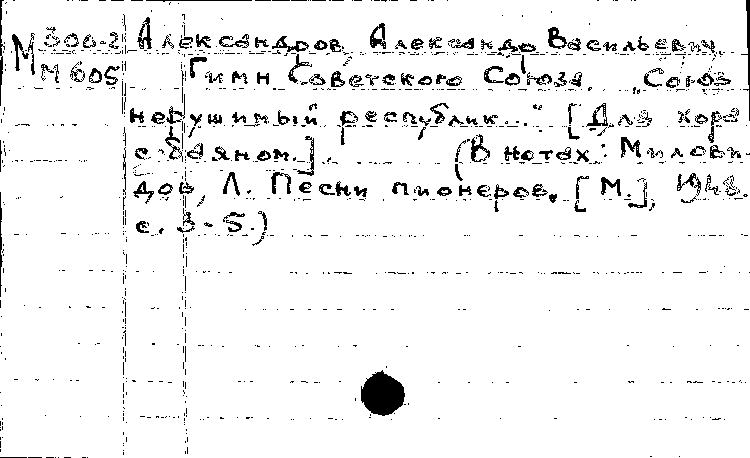 М 300-2 Александров, Александр Васильевич.
М 605 Гимн Советского Союза. „Союз
нерушимый республик..." [Для хора
с баяном.]. (В нотах: Милови-
дов, Л. Песни пионеров. [М.], 1948.
с. 3-5.)